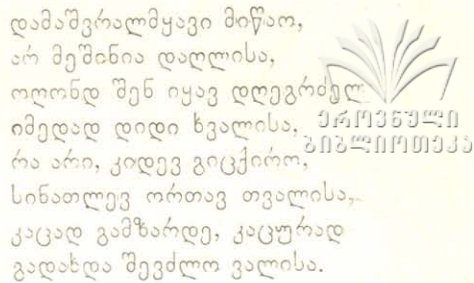 დამაშვრალმყავი მიწაო,
არ მეშინია დაღლისა,
ოღონდ შენ იყავ დღეგრძელ
იმედად დიდი ხვალისა,
რა არი, კიდევ გიცქირო,
სინათლევ ორთავ თვალისა,
კაცად გამზარდე, კაცურად
გადახდა შევძლო ვალისა.
ეროვნული
ბიბლიოთეკა